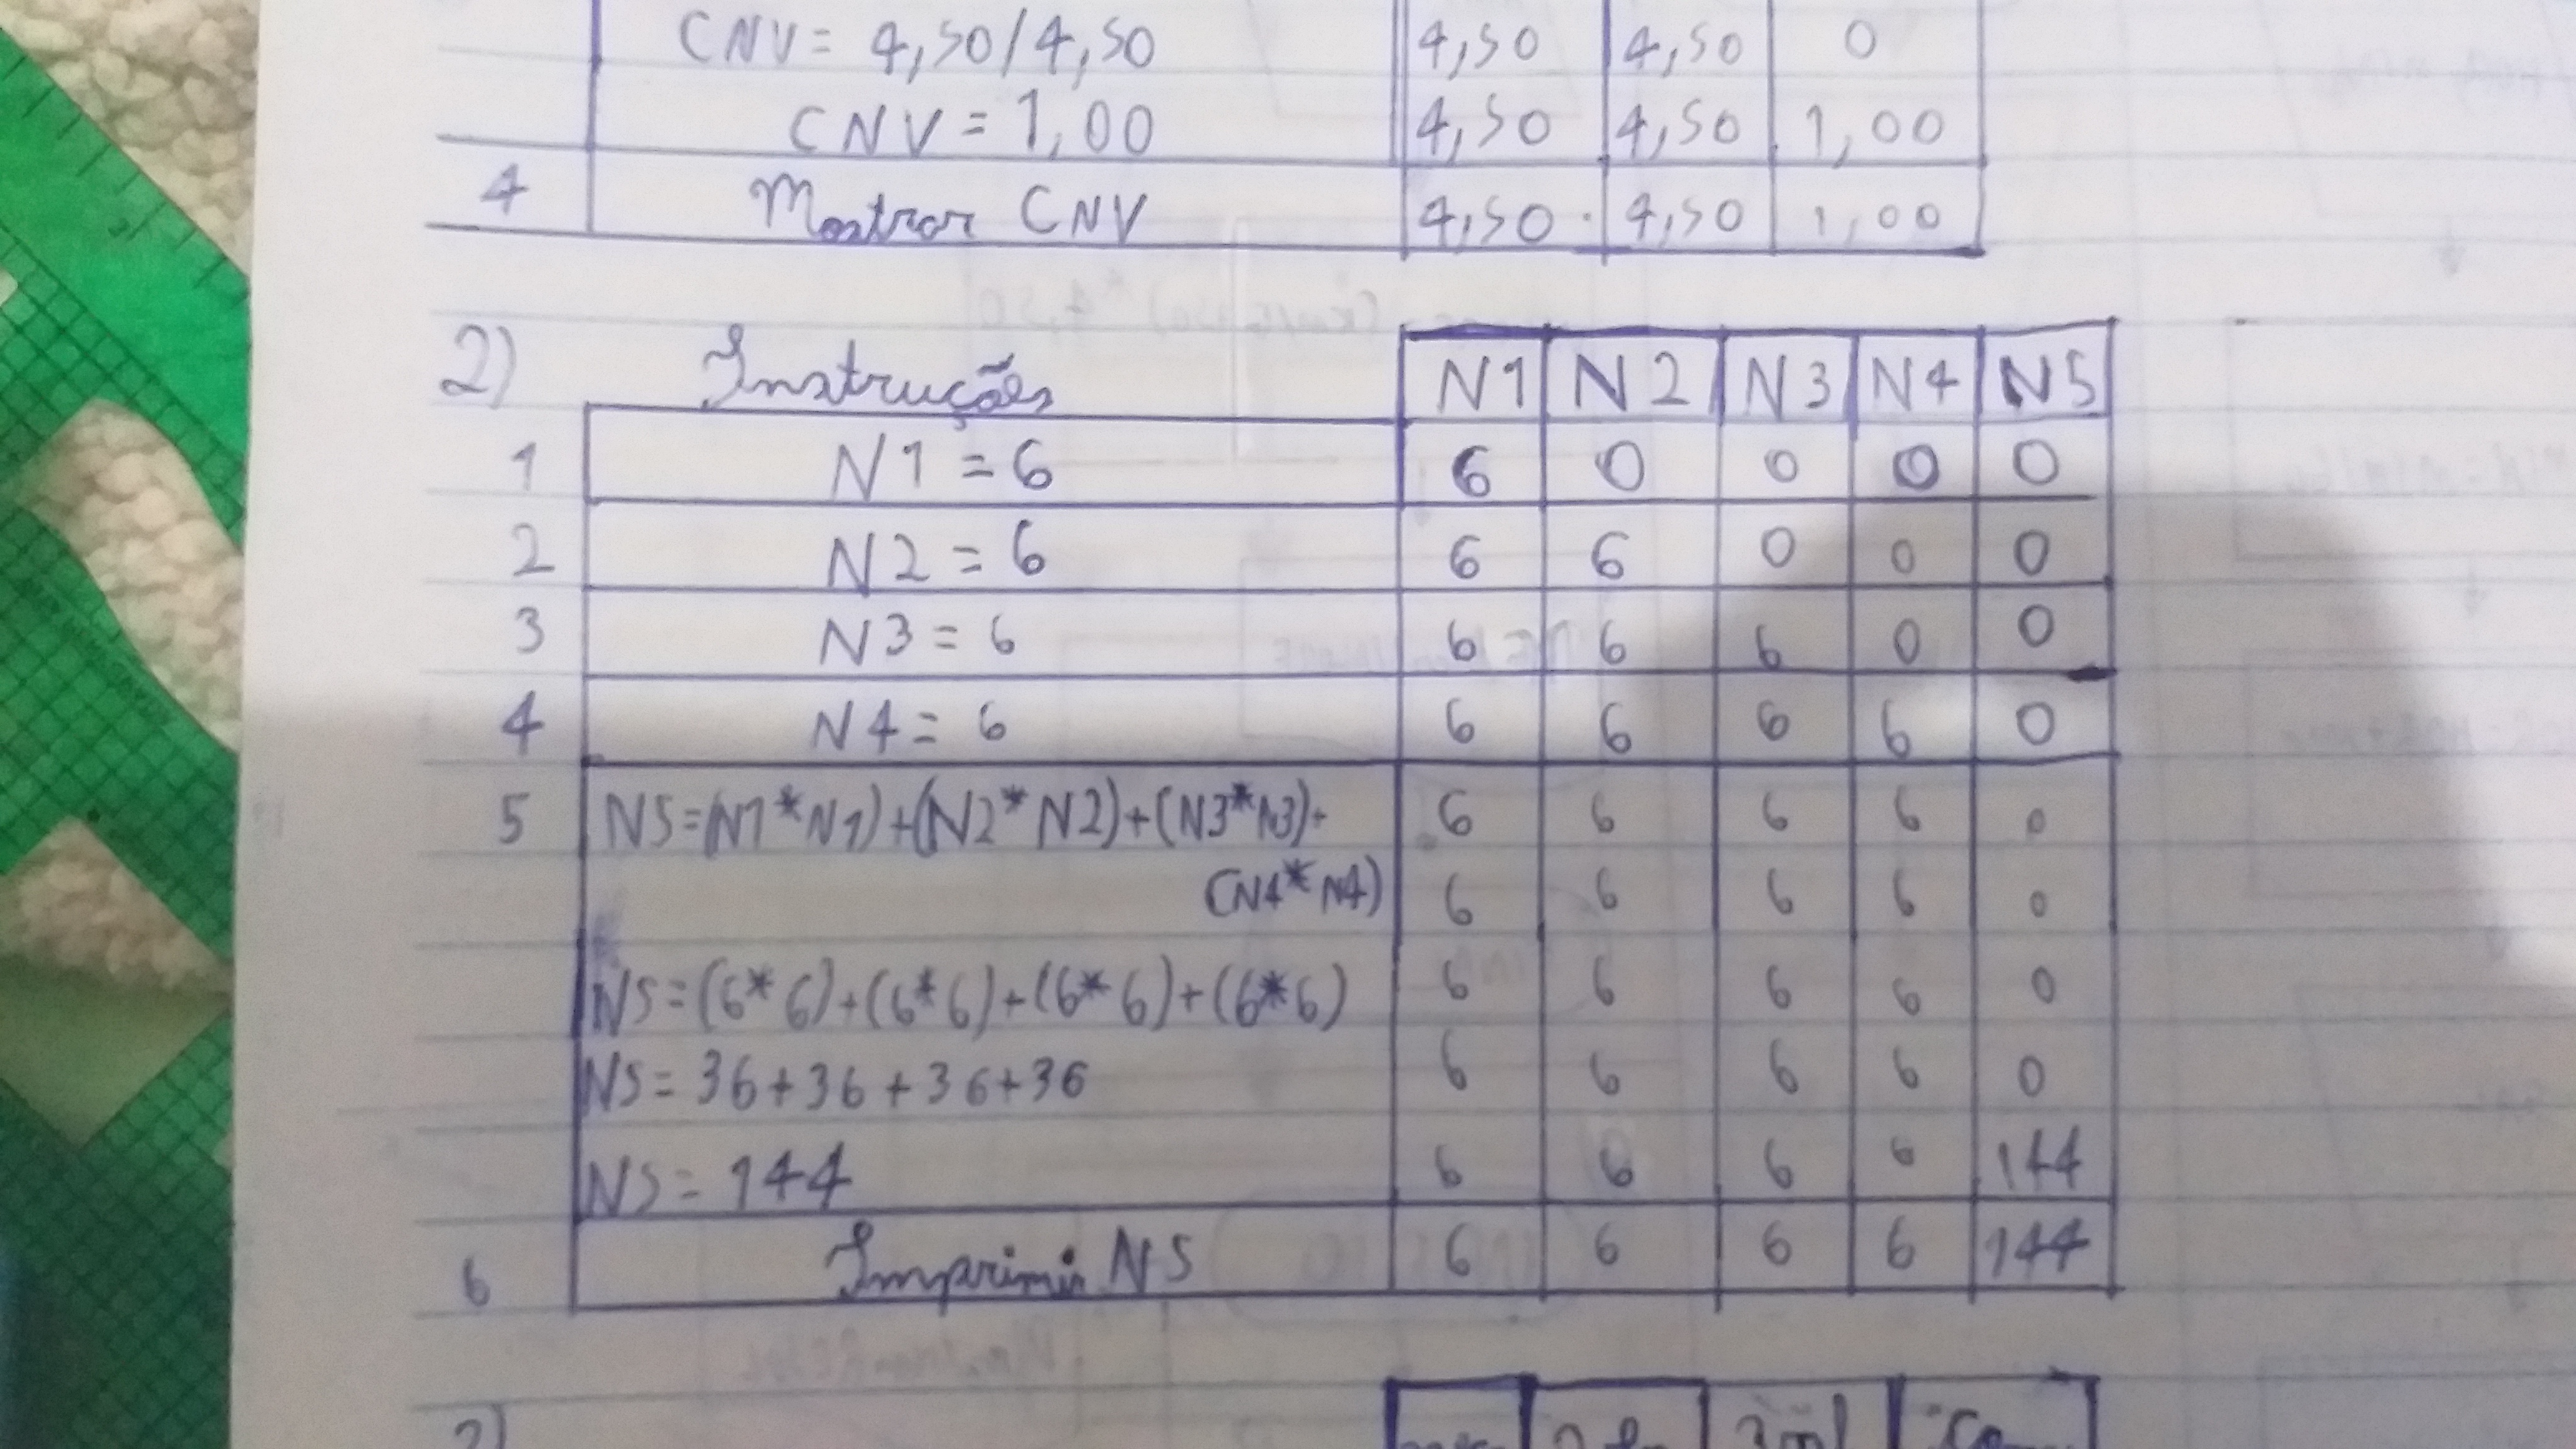 CNV = 4,50/4,50 4,50 4,50 0
CNV = 1,00 4,50 4,50 1,00
4 Mostrar CNV 4,50 4,50 1,00
2) Instruções N1 N2 N3 N4 N5
1 N1 = 6 6 0 0 0 0
2 N2 = 6 6 6 0 0 0
3 N3 = 6 6 6 6 0 0
4 N4 = 6 6 6 6 6 0
5 N5=(N1*N1)+(N2*N2)+(N3*N3)+ 6 6 6 6 0
(N4*N4) 6 6 6 6 0
N5=(6*6)+(6*6)+(6*6)+(6*6) 6 6 6 6 0
N5= 36+36+36+36 6 6 6 6 0
N5= 144 6 6 6 6 144
6 Imprimir N5 6 6 6 6 144